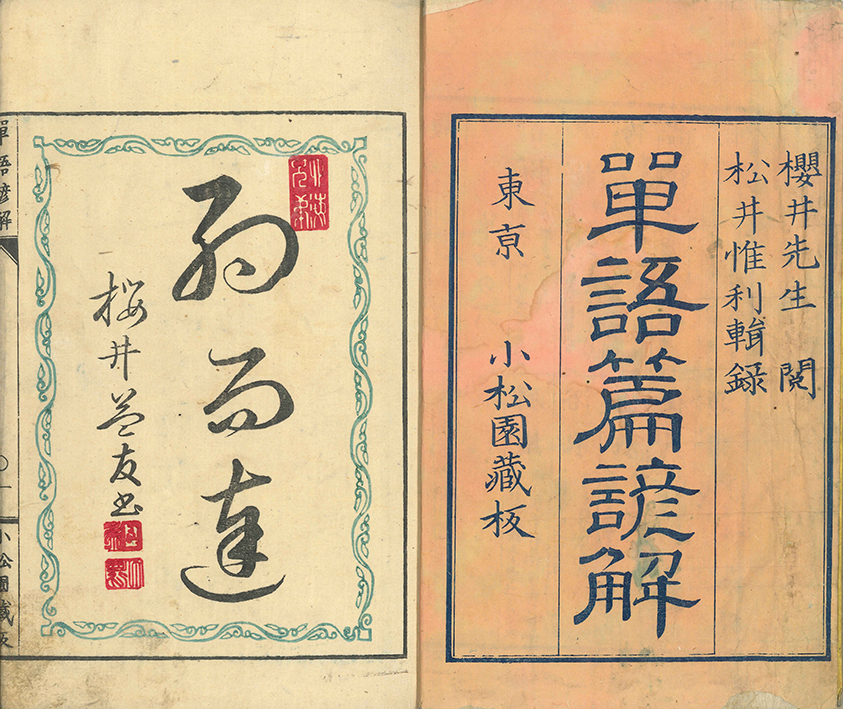 櫻井先生 閲
松井惟利輯録
單語篇諺解
東亰 小松園藏板
約而達
桜井益友書
單語諺解
〇一
小松園藏板